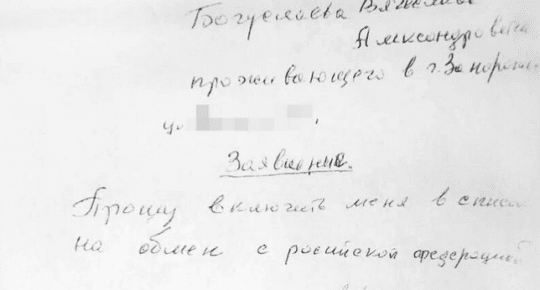 Богуслаева Вячеслава
Александровича
проживающего в г. Запорожье
ул.
Заявление.
Прошу включить меня в список
на обмен с росийской федерацией